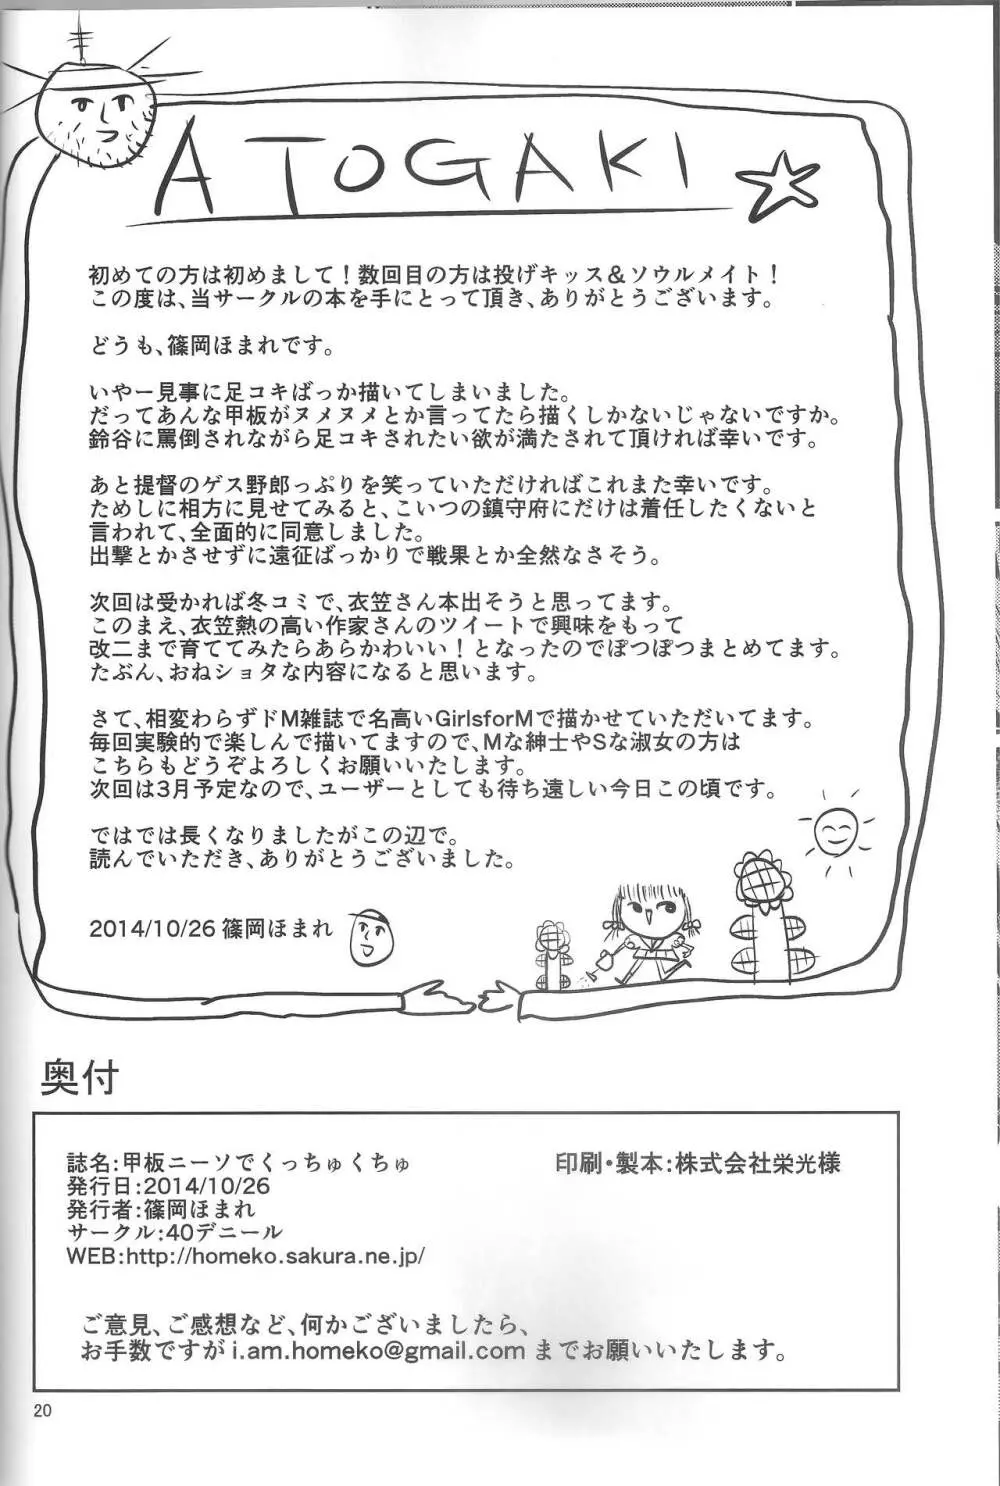 ATOGAKI
初めての方は初めまして！数回目の方は投げキッス＆ソウルメイト！
この度は、当サークルの本を手にとって頂き、ありがとうございます。
どうも、篠岡ほまれです。
いやー見事に足コキばっか描いてしまいました。
だってあんな甲板がヌメヌメとか言ってたら描くしかないじゃないですか。
鈴谷に罵倒されながら足コキされたい欲が満たされて頂ければ幸いです。
あと提督のゲス野郎っぷりを笑っていただければこれまた幸いです。
ためしに相方に見せてみると、こいつの鎮守府にだけは着任したくないと
言われて、全面的に同意しました。
出撃とかさせずに遠征ばっかりで戦果とか全然なさそう。
次回は受かれば冬コミで、衣笠さん本出そうと思ってます。
このまえ、衣笠熱の高い作家さんのツイートで興味をもって
改二まで育ててみたらあらかわいい！となったのでぽつぽつまとめてます。
たぶん、おねショタな内容になると思います。
さて、相変わらずドM雑誌で名高いGirlsforMで描かせていただいてます。
毎回実験的で楽しんで描いてますので、Mな紳士やSな淑女の方は
こちらもどうぞよろしくお願いいたします。
次回は3月予定なので、ユーザーとしても待ち遠しい今日この頃です。
ではでは長くなりましたがこの辺で。
読んでいただき、ありがとうございました。
2014/10/26 篠岡ほまれ
奥付
誌名:甲板ニーソでくっちゅくちゅ
発行日:2014/10/26
発行者:篠岡ほまれ
サークル:40デニール
WEB:http://homeko.sakura.ne.jp/
印刷・製本:株式会社栄光様
ご意見、ご感想など、何かございましたら、
お手数ですが i.am.homeko@gmail.com までお願いいたします。
20